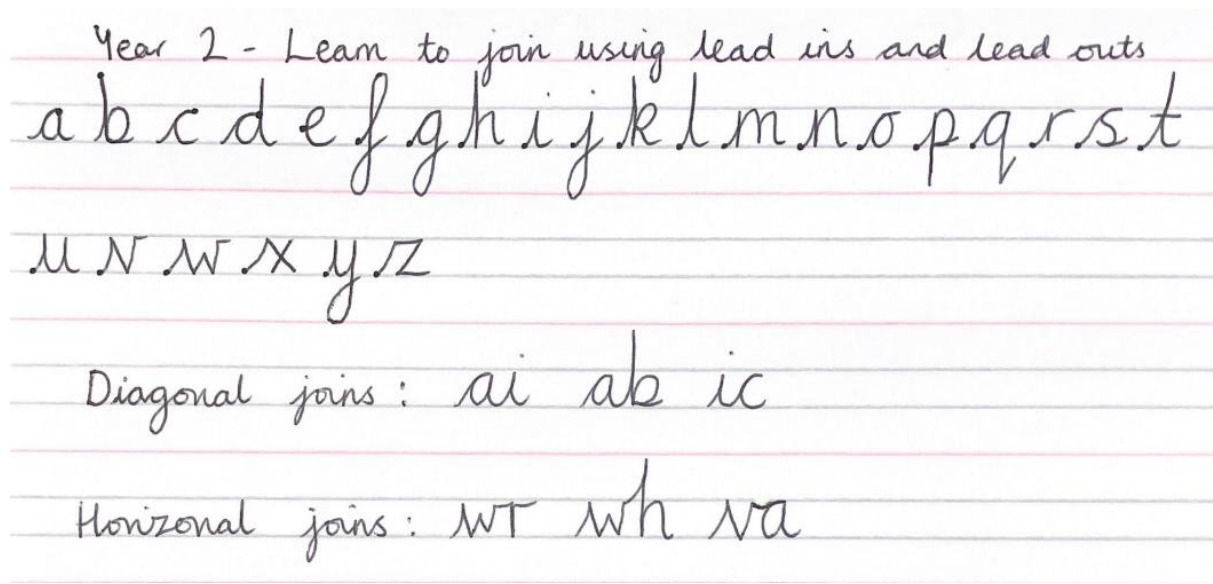 Year 2 - Learn to join using lead ins and lead outs
a b c d e f g h i j k l m n o p q r s t
u v w x y z
Diagonal joins: ai ab ic
Horizonal joins: wr wh va